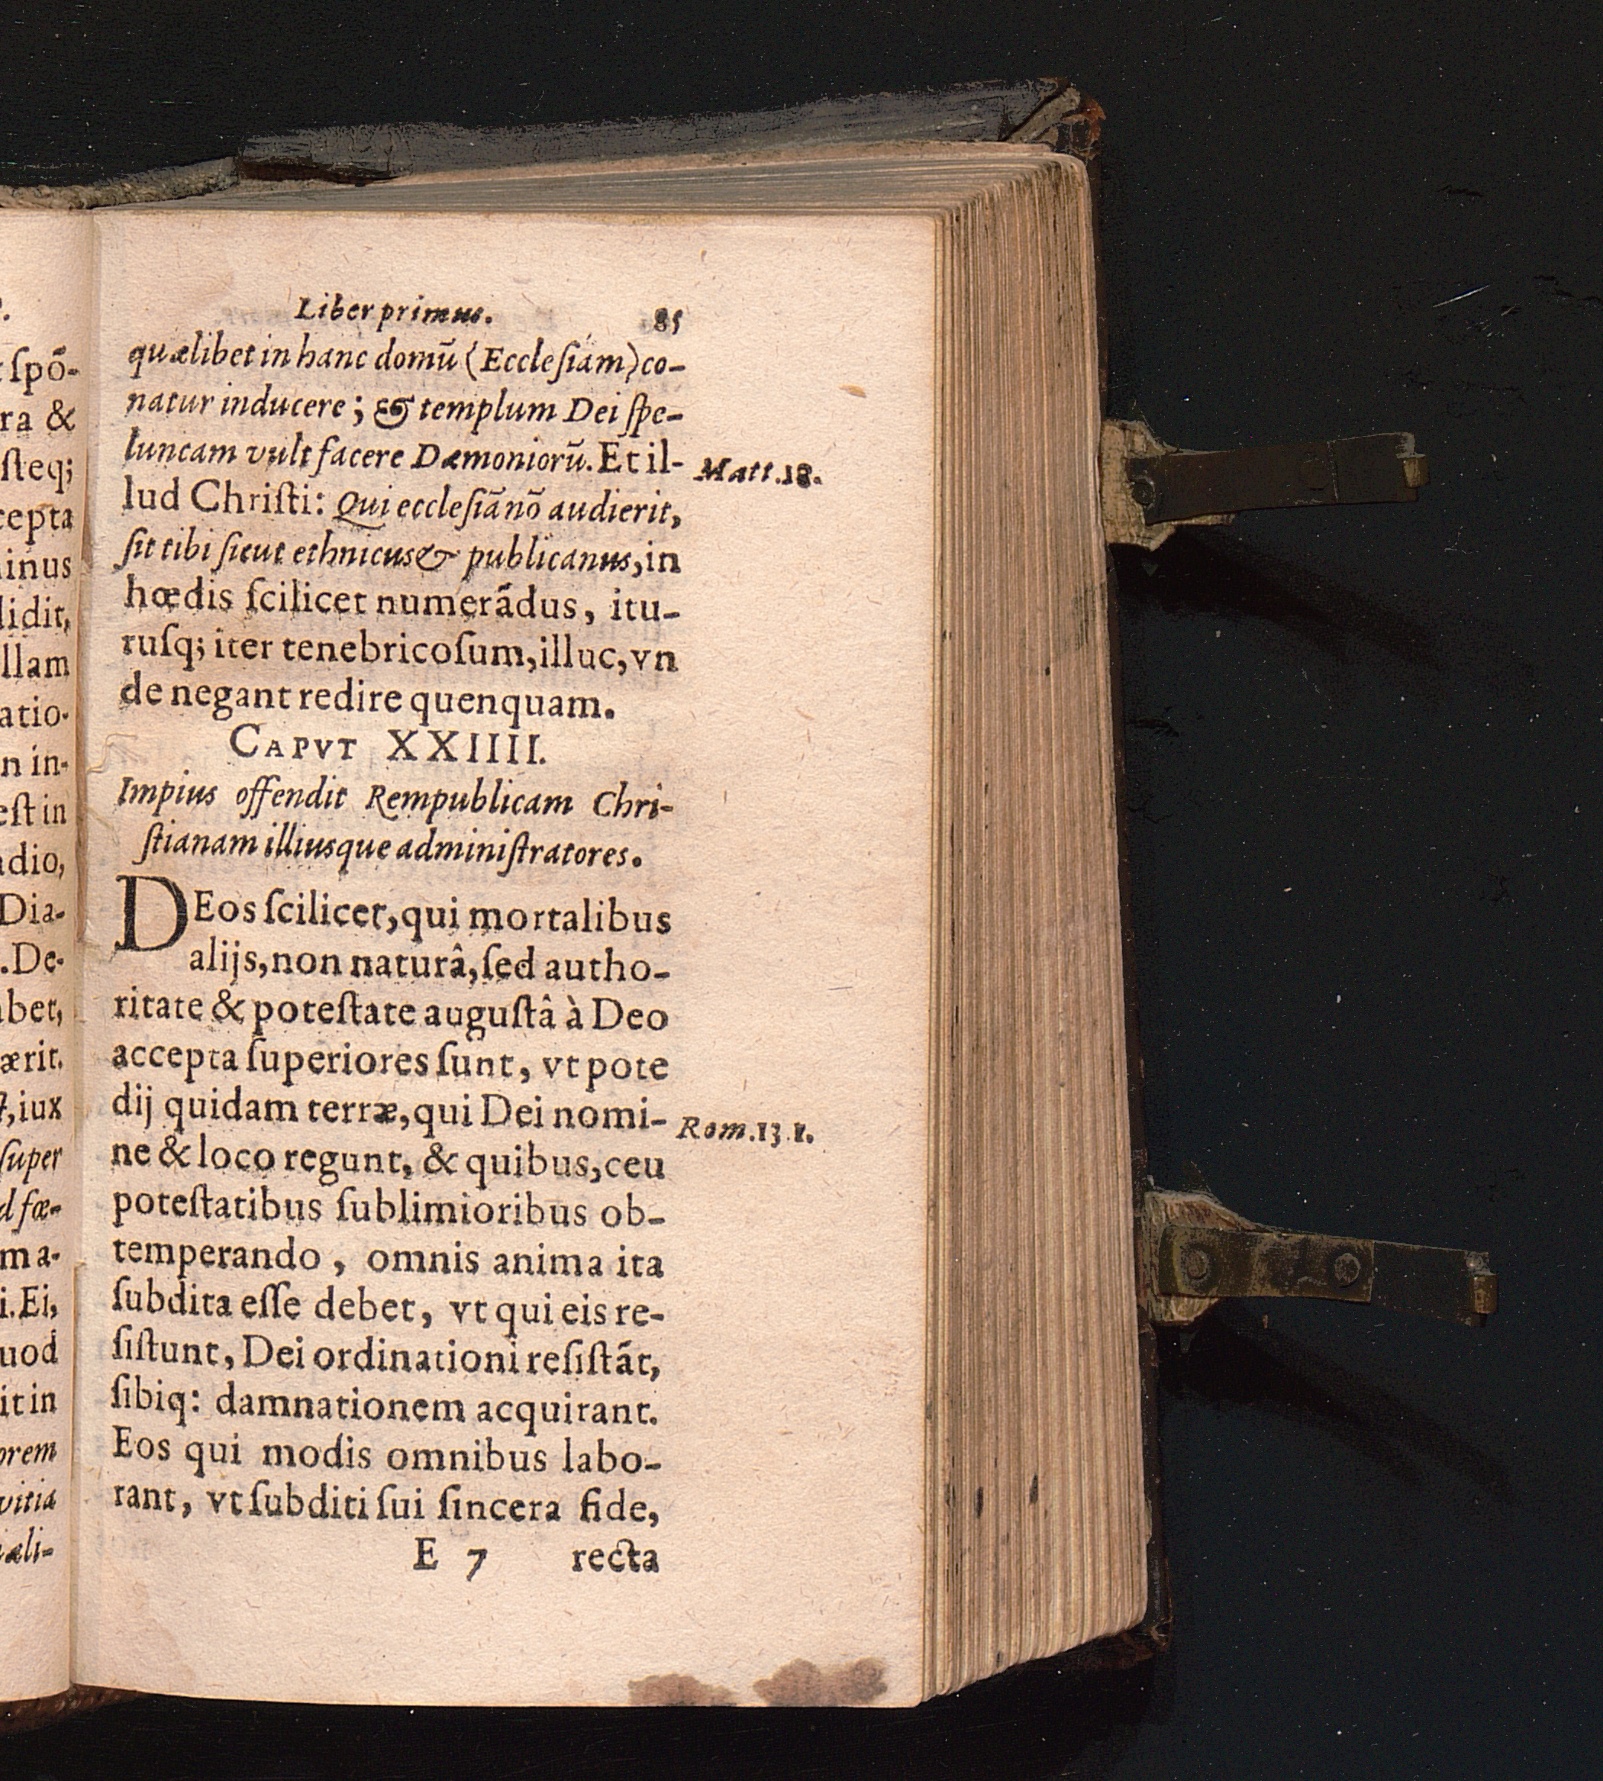 .
ſpõ-
ra &
ſteq;
cepta
inus
lidit,
llam
atio-
n in-
eſt in
adio,
Dia-
.De-
abet,
ærit.
,iux
ſuper
d fœ-
m a-
i.Ei,
uod
it in
orem
vitia
æli-
Liber primus. 85
quælibet in hanc domũ (Eccleſiam) co-
natur inducere; & templum Dei ſpe-
luncam vult facere Dæmoniorũ. Et il-
Matt.18.
lud Chriſti: Qui eccleſiã nõ audierit,
ſit tibi ſicut ethnicus & publicanus, in
hœdis ſcilicet numerãdus, itu-
ruſq; iter tenebricoſum, illuc, vn
de negant redire quenquam.
CAPVT XXIIII.
Impius offendit Rempublicam Chri-
ſtianam illiusque adminiſtratores.
DEos ſcilicet, qui mortalibus
alijs, non naturâ, ſed autho-
ritate & poteſtate auguſtâ à Deo
accepta ſuperiores ſunt, vt pote
dij quidam terræ, qui Dei nomi-
Rom.13.1.
ne & loco regunt, & quibus, ceu
poteſtatibus ſublimioribus ob-
temperando, omnis anima ita
ſubdita eſſe debet, vt qui eis re-
ſiſtunt, Dei ordinationi reſiſtãt,
ſibiq: damnationem acquirant.
Eos qui modis omnibus labo-
rant, vt ſubditi ſui ſincera fide,
E 7 recta